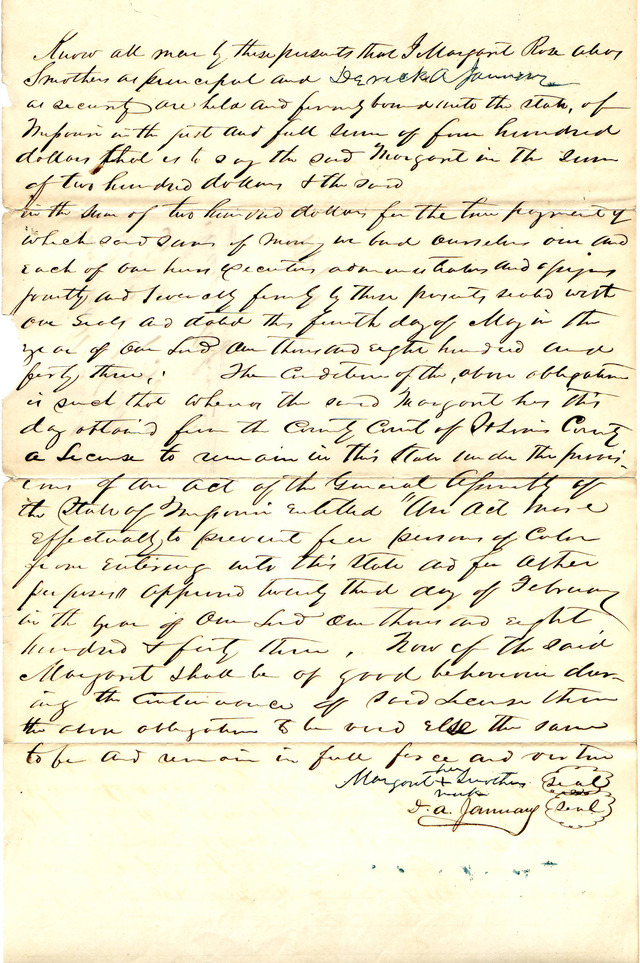 Know all men by these presents that I Margaret Rose alias
Smothers as principal and Derrick A January
as security are held and firmly bound unto the state, of
Missouri in the just and full sum of four hundred
dollars that is to say the said Margaret in the sum
of two hundred dollars & the said
in the sum of two hundred dollars for the true payment of
which said sums of money we bind ourselves our and
each of our heirs executors administrators and assigns
jointly and severally firmly by these presents sealed with
our seals and dated this fourth day of May in the
year of our Lord one thousand eight hundred and
forty three, : The condition of the, above obligation
is such that whereas the said Margaret has this
day obtained from the County Court of St Louis County
a License to remain in this State under the provis-
ions of an act of the General Assembly of
the State of Missouri entitled "An Act more
effectually to prevent free persons of Color
from entering into this State and for other
purposes" approved twenty third day of February
in the year of our Lord one thousand eight
hundred & forty three, Now if the said
Margaret shall be of good behavior dur-
ing the continuance of said License then
the above obligation to be void else the same
to be and remain in full force and virtue
Margaret her + mark Smothers (seal)
D. A. January (seal)